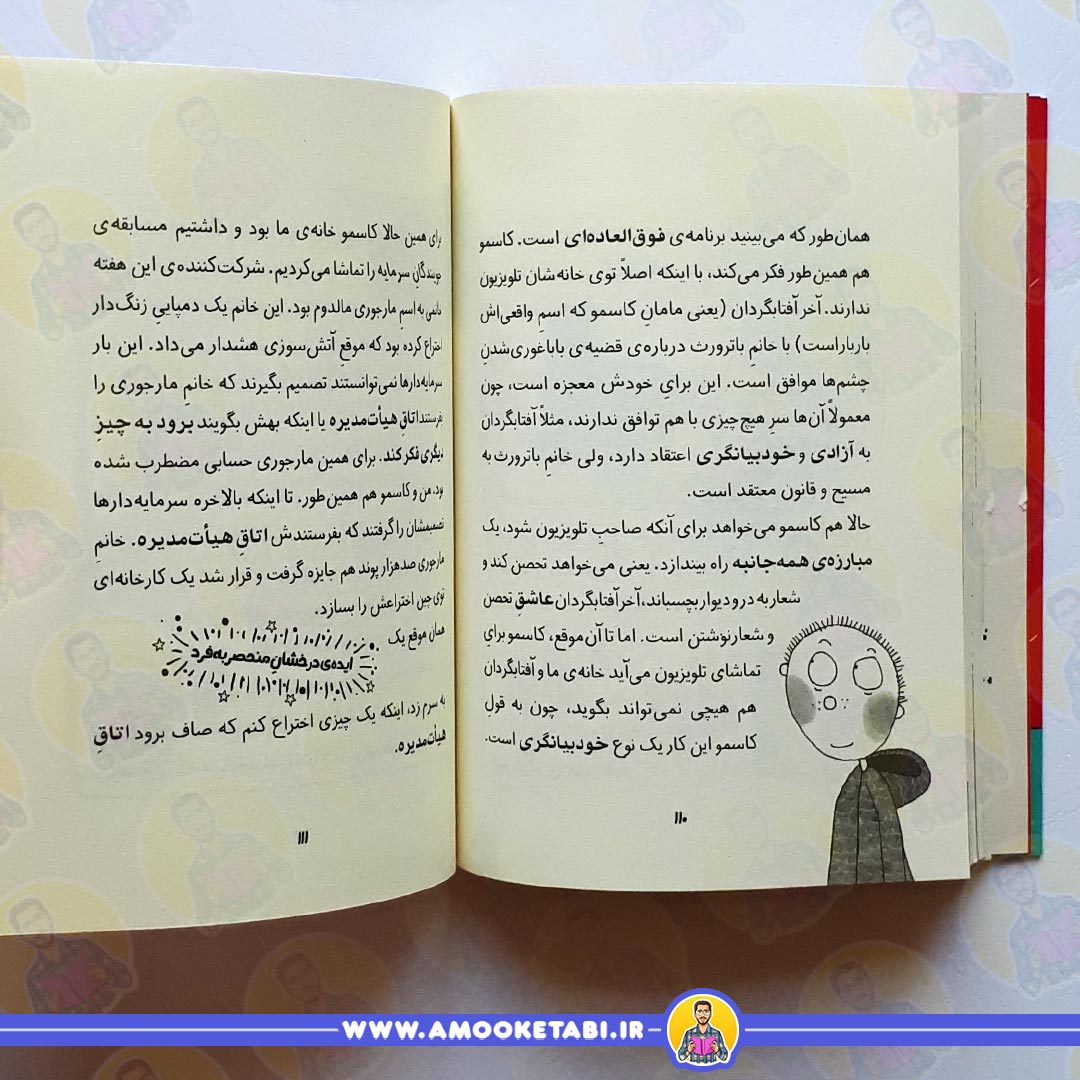 همان‌طور که می‌بینید برنامه‌ی فوق‌العاده‌ای است. کاسمو
هم همین‌طور فکر می‌کند، با اینکه اصلاً توی خانه‌شان تلویزیون
ندارند. آخر آفتابگردان (یعنی مامانِ کاسمو که اسمِ واقعی‌اش
بارباراست) با خانمِ باترورث درباره‌ی قضیه‌ی باباغوری‌شدنِ
چشم‌ها موافق است. این برایِ خودش معجزه است، چون
معمولاً آن‌ها سرِ هیچ‌چیزی با هم توافق ندارند، مثلاً آفتابگردان
به آزادی و خودبیانگری اعتقاد دارد، ولی خانمِ باترورث به
مسیح و قانون معتقد است.
حالا هم کاسمو می‌خواهد برای آنکه صاحبِ تلویزیون شود، یک
مبارزه‌ی همه‌جانبه راه بیندازد. یعنی می‌خواهد تحصن کند و
شعار به در و دیوار بچسباند، آخر آفتابگردان عاشقِ تحصن
و شعارنوشتن است. اما تا آن‌موقع، کاسمو برایِ
تماشای تلویزیون می‌آید خانه‌ی ما و آفتابگردان
هم هیچی نمی‌تواند بگوید، چون به قولِ
کاسمو این کار یک نوع خودبیانگری است.
۱۱۰
برای همین حالا کاسمو خانه‌ی ما بود و داشتیم مسابقه‌ی
جویندگانِ سرمایه را تماشا می‌کردیم. شرکت‌کننده‌ی این هفته
خانمی به اسمِ مارجوری مالدوم بود. این خانم یک دمپاییِ زنگ‌دار
اختراع کرده بود که موقعِ آتش‌سوزی هشدار می‌داد. این بار
سرمایه‌دارها نمی‌توانستند تصمیم بگیرند که خانمِ مارجوری را
بفرستند اتاقِ هیأت‌مدیره یا اینکه بهش بگویند برود به چیزِ
دیگری فکر کند. برای همین مارجوری حسابی مضطرب شده
بود. من و کاسمو هم همین‌طور. تا اینکه بالاخره سرمایه‌دارها
تصمیمشان را گرفتند که بفرستندش اتاقِ هیأت‌مدیره. خانمِ
مارجوری صدهزار پوند هم جایزه گرفت و قرار شد یک کارخانه‌ای
توی چین اختراعش را بسازد.
همان موقع یک
ایده‌ی درخشان منحصربه‌فرد
به سرم زد، اینکه یک چیزی اختراع کنم که صاف برود اتاقِ
هیأت‌مدیره.
۱۱۱
WWW.AMOOKETABI.IR